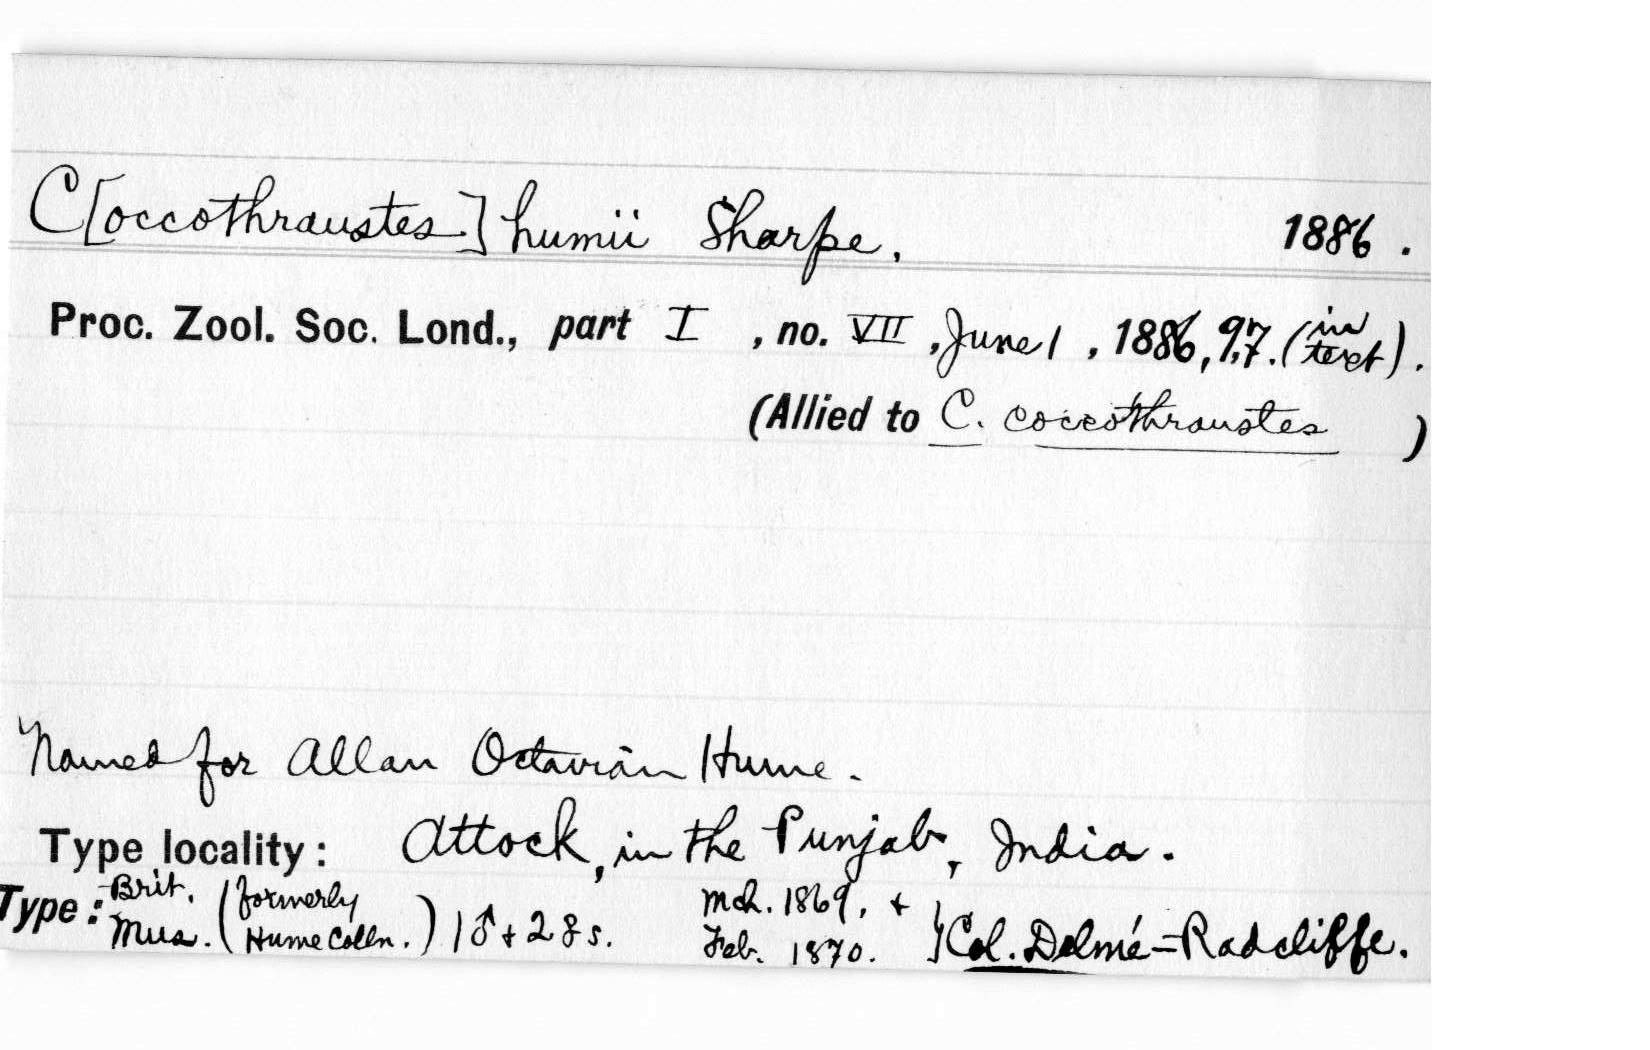 C[occothraustes] humii Sharpe. 1886.
Proc. Zool. Soc. Lond., part I, no. VII, June 1, 1886, 97. (in text).
(Allied to C. coccothraustes)
Named for Allan Octavian Hume.
Type locality: Attock, in the Punjab, India.
Type: Brit. Mus. (formerly Hume Colln.) 1♂ + 2 ♀s. Mch. 1869, + Feb. 1870. } Col. Delmé=Radcliffe.